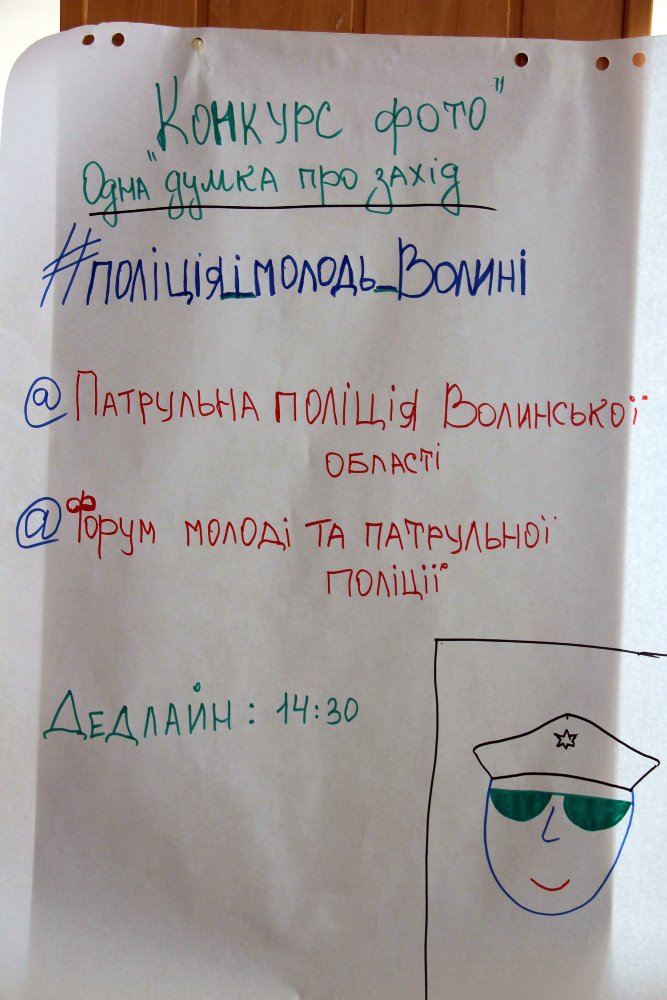 Конкурс фото"
Одна "думка про захід
#поліція_і_молодь_Волині
@Патрульна поліція Волинської
області
@Форум молоді та патрульної
поліції
Дедлайн: 14:30